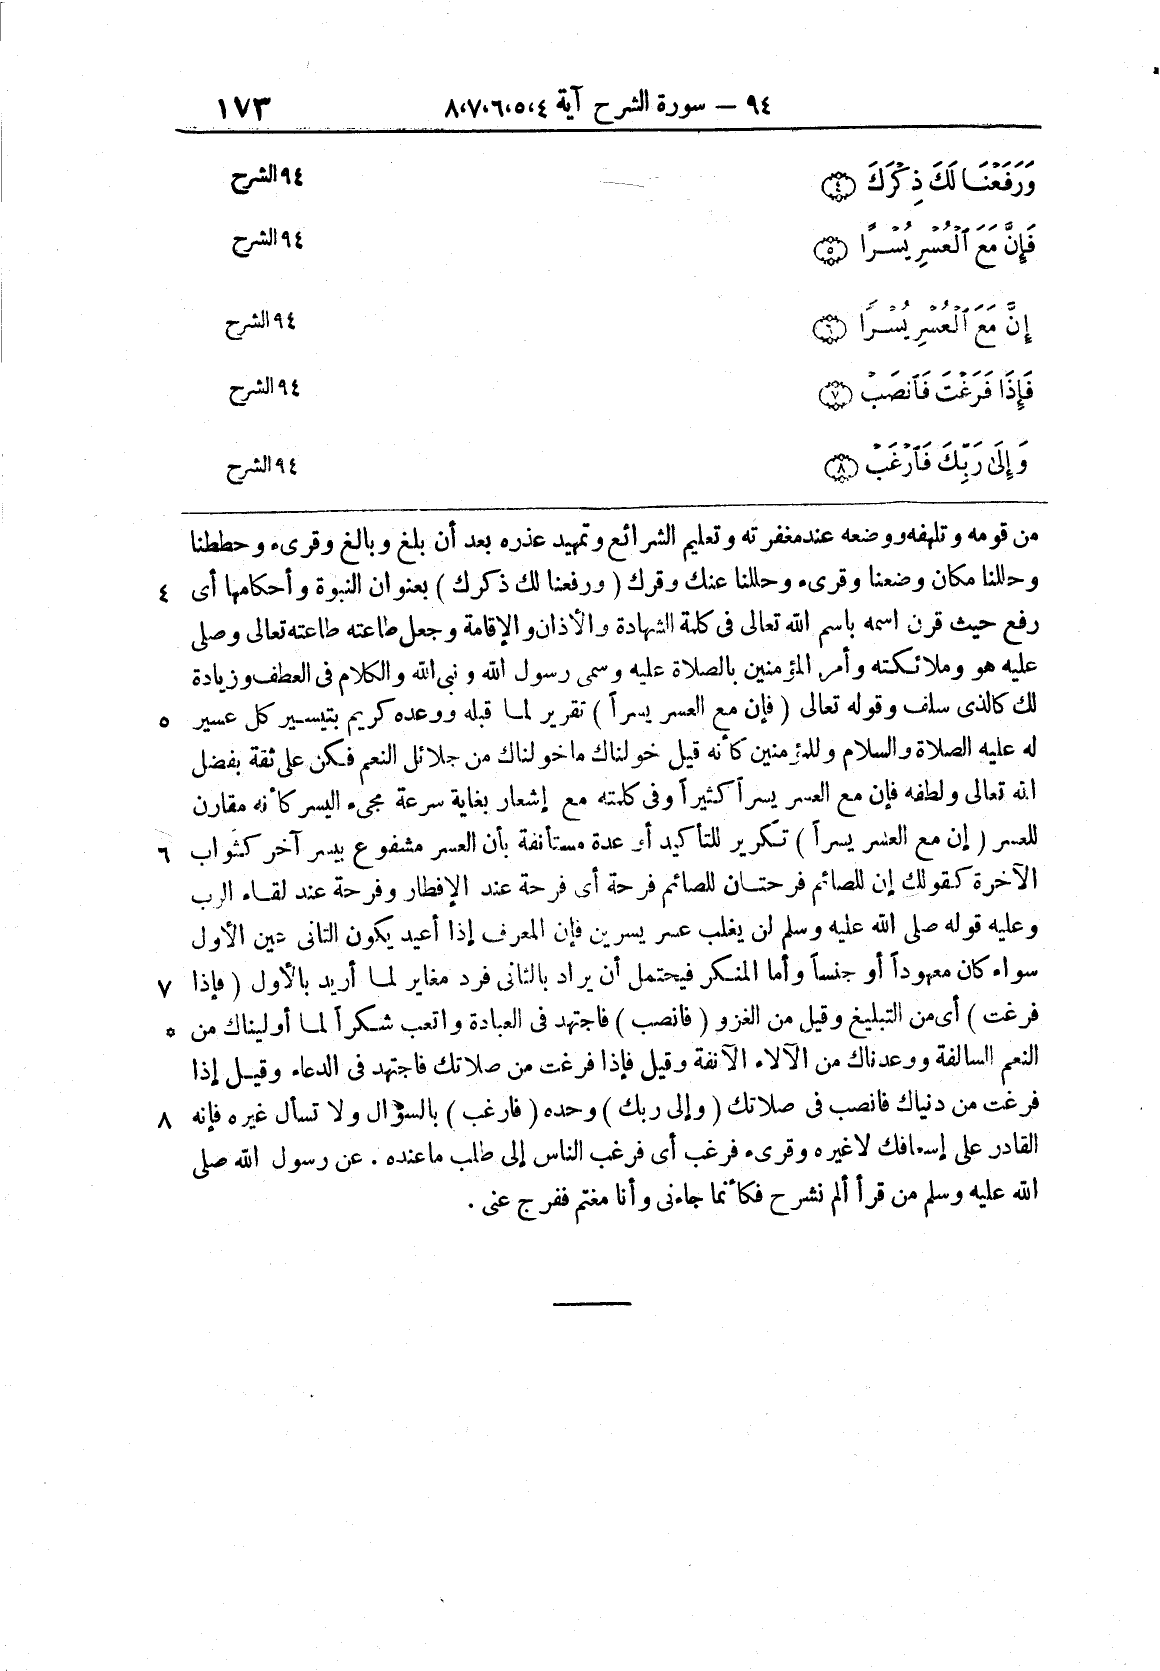 ٩٤ — سورة الشرح آية ٨،٧،٦،٥،٤ ١٧٣
وَرَفَعْنَا لَكَ ذِكْرَكَ ﴿٤﴾ ٩٤ الشرح
فَإِنَّ مَعَ ٱلْعُسْرِ يُسْرًا ﴿٥﴾ ٩٤ الشرح
إِنَّ مَعَ ٱلْعُسْرِ يُسْرًا ﴿٦﴾ ٩٤ الشرح
فَإِذَا فَرَغْتَ فَٱنصَبْ ﴿٧﴾ ٩٤ الشرح
وَإِلَىٰ رَبِّكَ فَٱرْغَب ﴿٨﴾ ٩٤ الشرح
من قومه وتلهفه ووضعه عند مغفرته وتعليم الشرائع وتمهيد عذره بعد أن بلغ وبالغ وقرىء وحططنا
وحللنا مكان وضعنا وقرىء وحللنا عنك وقرك ( ورفعنا لك ذكرك ) بعنوان النبوة وأحكامها أى ٤
رفع حيث قرن اسمه باسم الله تعالى فى كلمة الشهادة والأذان والإقامة وجعل طاعته طاعته تعالى وصلى
عليه هو وملائكته وأمر المؤمنين بالصلاة عليه وسمى رسول الله ونبى الله والكلام فى العطف وزيادة
لك كالذى سلف وقوله تعالى ( فإن مع العسر يسراً ) تقرير لما قبله ووعده كريم بتيسير كل عسير ٥
له عليه الصلاة والسلام وللمؤمنين كأنه قيل خولناك ما خولناك من جلائل النعم فكن على ثقة بفضل
الله تعالى ولطفه فإن مع العسر يسراً كثيراً وفى كلمته مع إشعار بغاية سرعة مجىء اليسر كأنه مقارن
للعسر ( إن مع العسر يسراً ) تكرير للتأكيد أو عدة مستأنفة بأن العسر مشفوع بيسر آخر كثواب ٦
الآخرة كقولك إن للصائم فرحتان للصائم فرحة أى فرحة عند الإفطار وفرحة عند لقاء الرب
وعليه قوله صلى الله عليه وسلم لن يغلب عسر يسرين فإن المعرف إذا أعيد يكون الثانى عين الأول
سواء كان معهوداً أو جنساً وأما المنكر فيحتمل أن يراد بالثانى فرد مغاير لما أريد بالأول ( فإذا ٧
فرغت ) أى من التبليغ وقيل من الغزو ( فانصب ) فاجتهد فى العبادة واتعب شكراً لما أوليناك من *
النعم السالفة ووعدناك من الآلاء الآنفة وقيل فإذا فرغت من صلاتك فاجتهد فى الدعاء وقيل إذا
فرغت من دنياك فانصب فى صلاتك ( وإلى ربك ) وحده ( فارغب ) بالسؤال ولا تسأل غيره فإنه ٨
القادر على إسعافك لا غيره وقرىء فرغب أى فرغب الناس إلى طلب ما عنده . عن رسول الله صلى
الله عليه وسلم من قرأ ألم نشرح فكأنما جاءنى وأنا مغتم ففرج عنى .